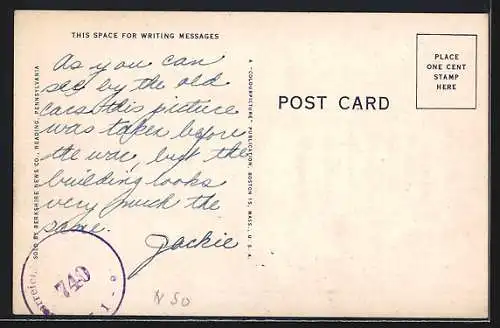 THIS SPACE FOR WRITING MESSAGES
As you can
see by the old
cars this picture
was taken before
the war, but the
building looks
very much the
same.
Jackie
SOLD BY BERKSHIRE NEWS CO., READING, PENNSYLVANIA
A "COLOURPICTURE" PUBLICATION, BOSTON 15, MASS., U.S.A.
POST CARD
PLACE
ONE CENT
STAMP
HERE
740
1
N 50